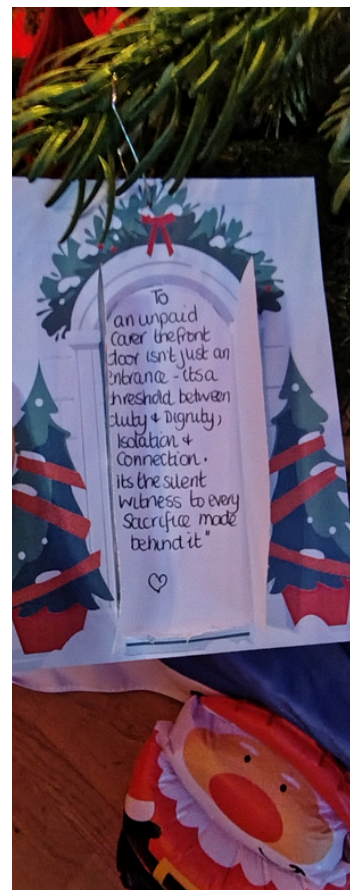 To
an unpaid
Carer the front
door isn't just an
entrance - its a
threshold between
duty & Dignity,
Isolation &
Connection.
its the silent
witness to every
Sacrifice made
behind it"